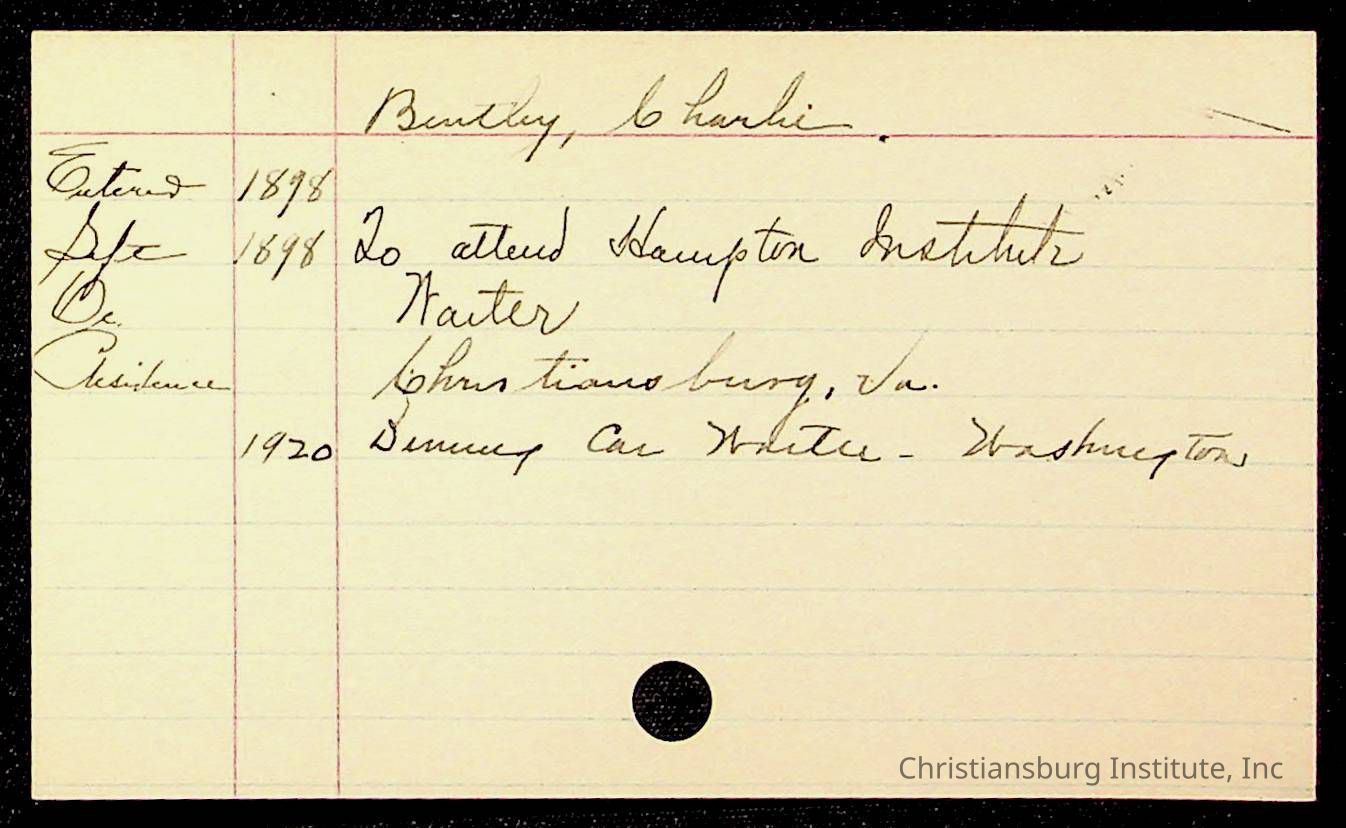 Bentley, Charlie.
Entered 1898
Left 1898 To attend Hampton Institute
Oc. Waiter
Residence Christiansburg, Va.
1920 Dining Car Waiter - Washington
Christiansburg Institute, Inc